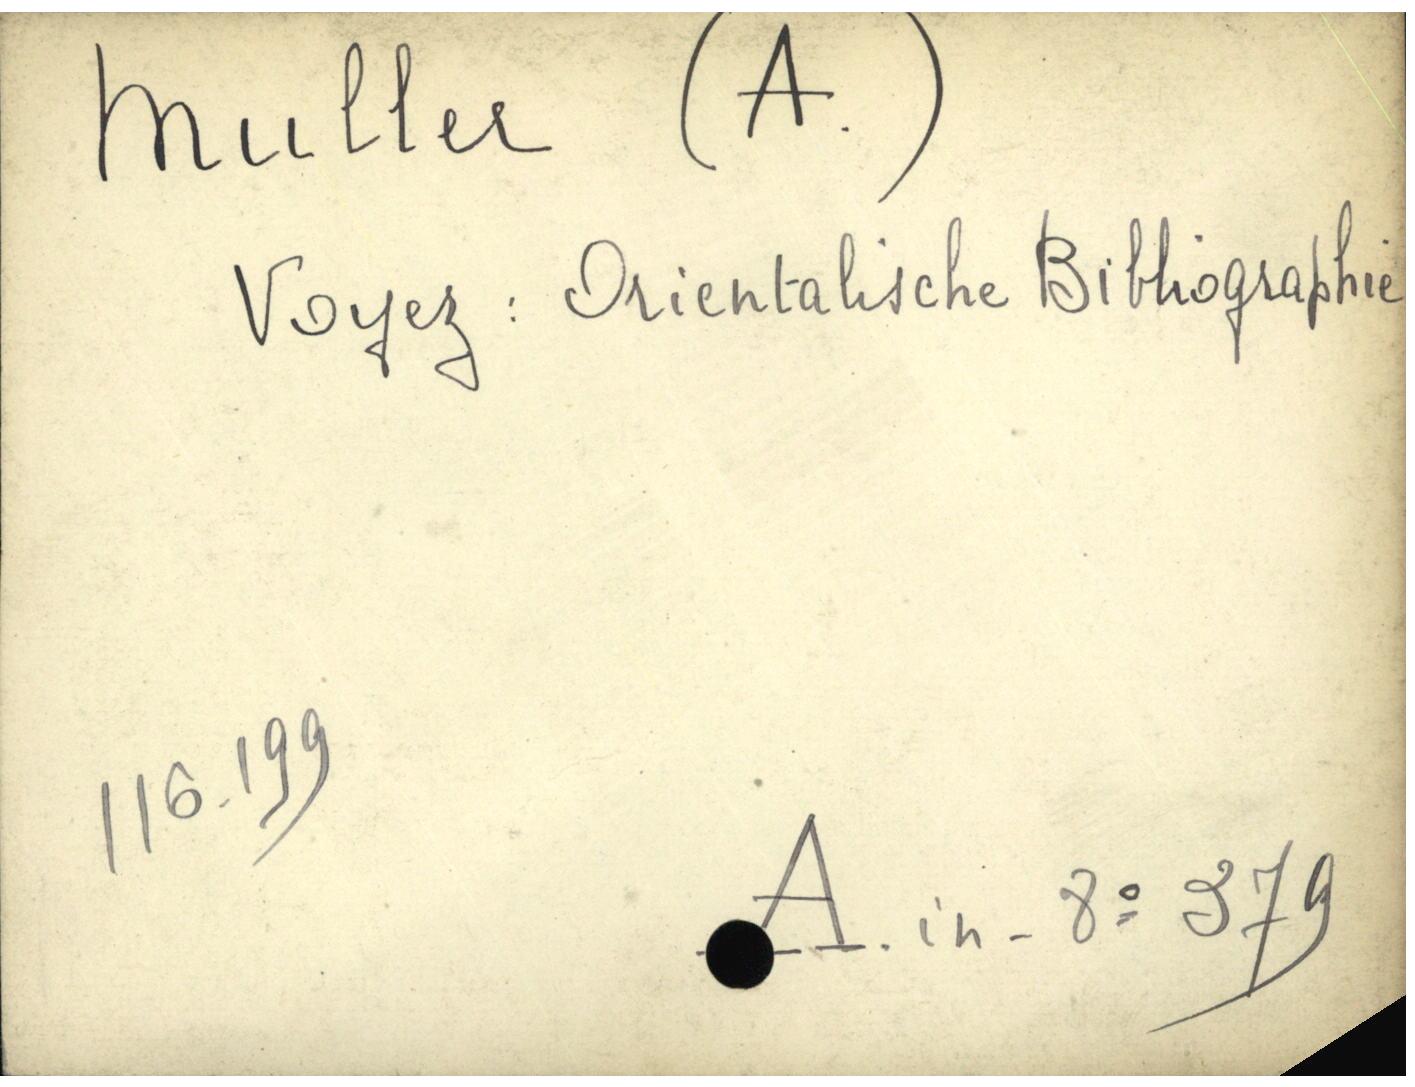 Muller (A.)
Voyez : Orientalische Bibliographie
116.199
A. in-8º 379